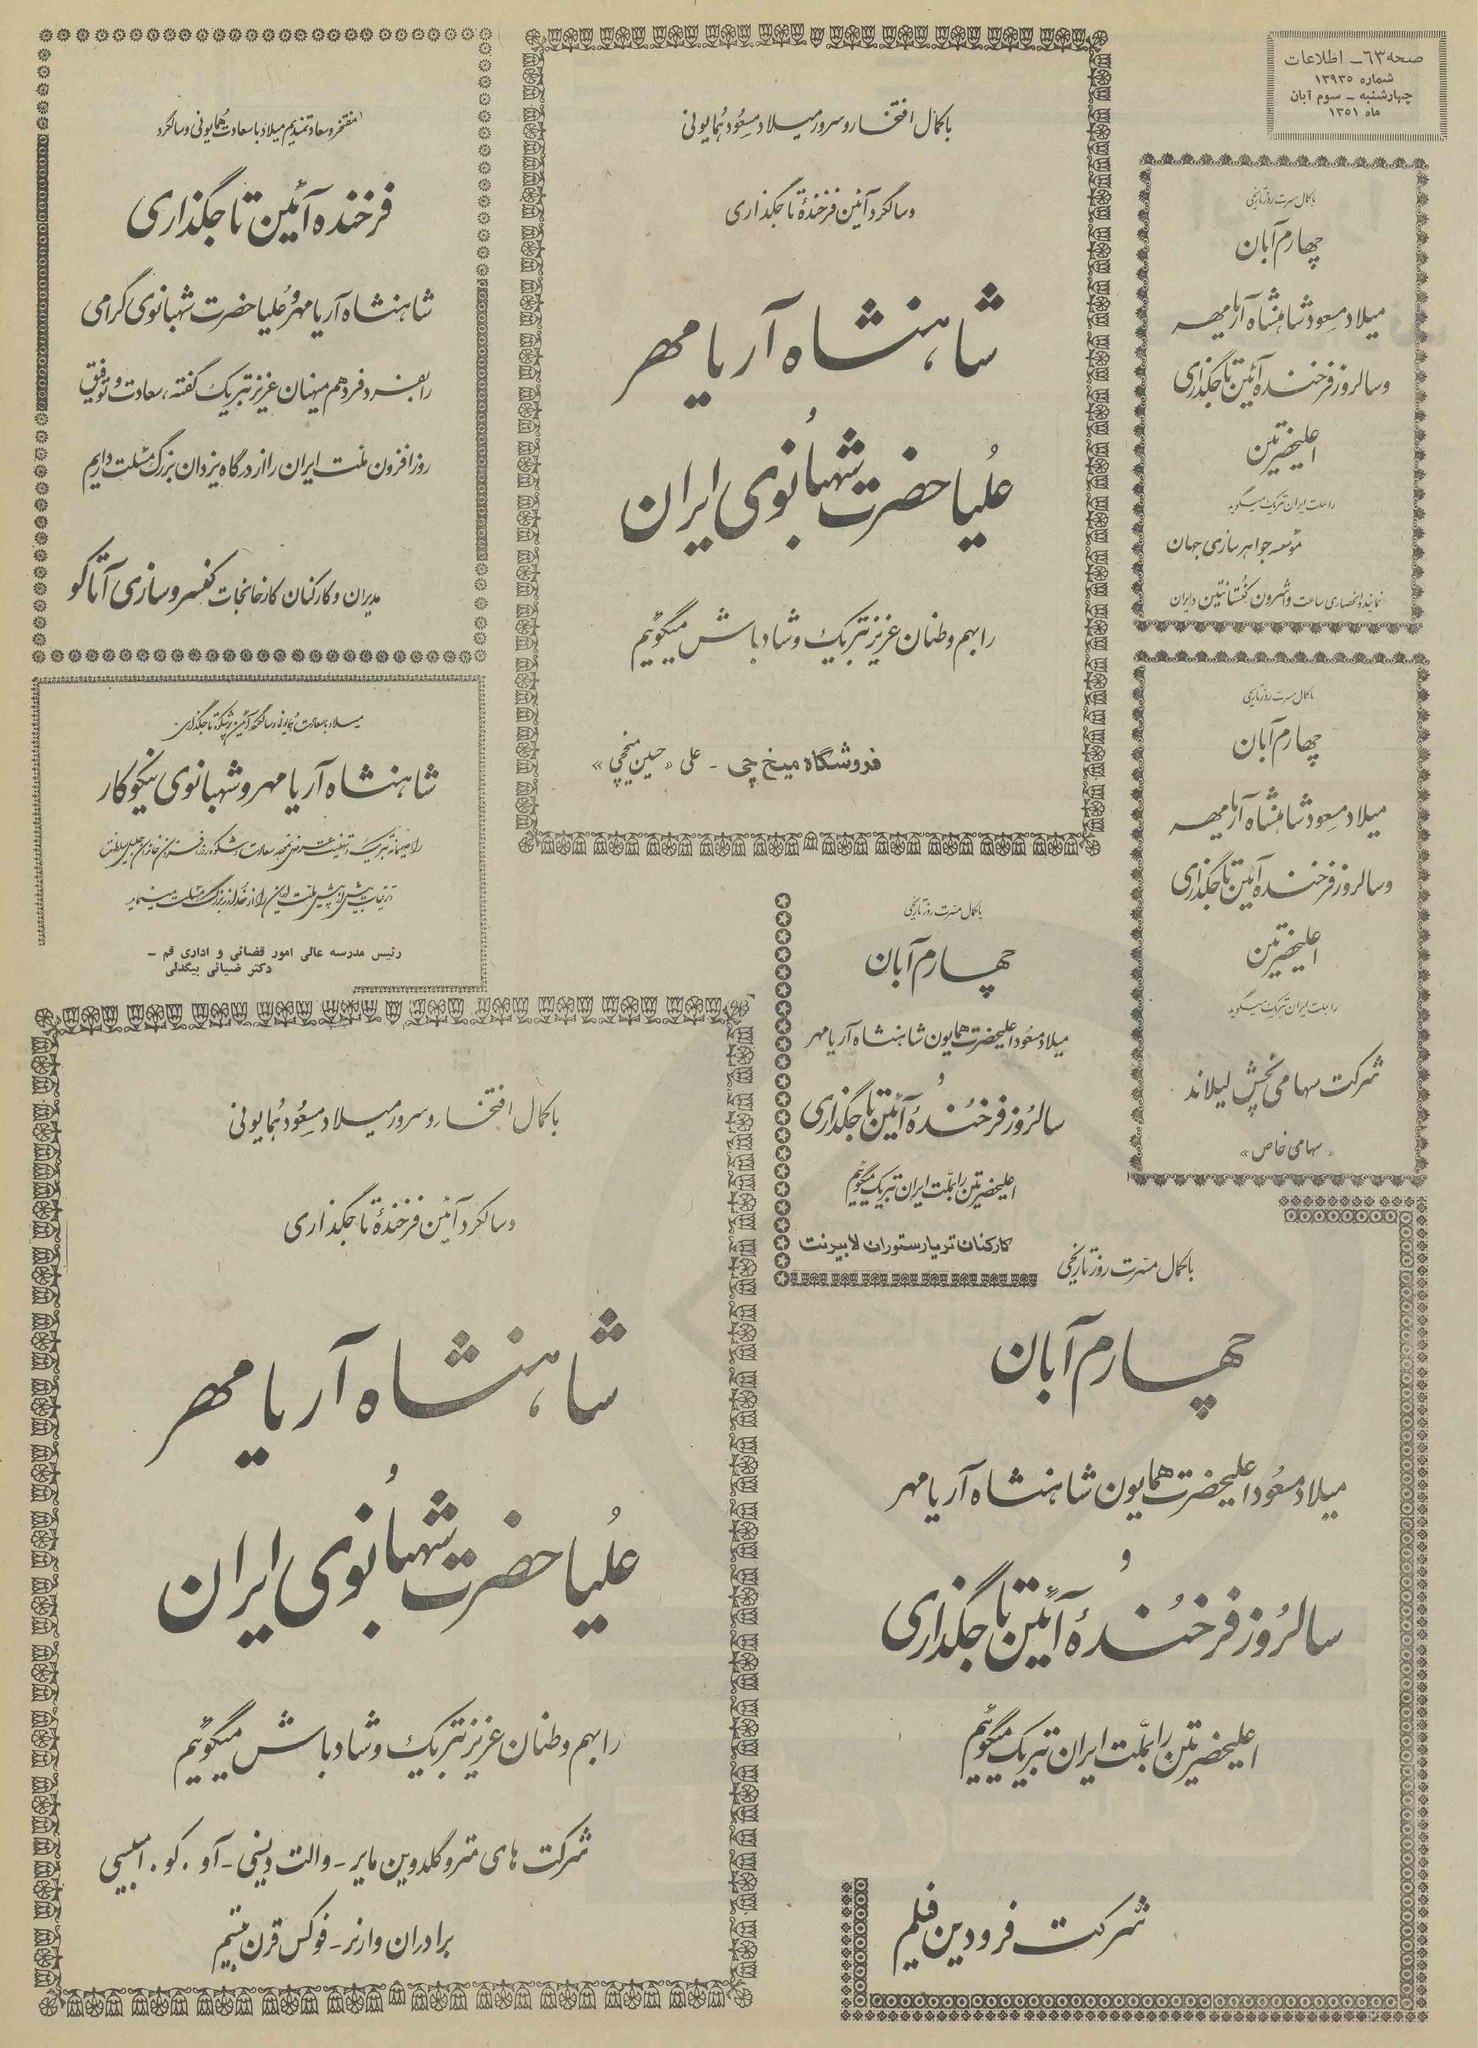 صفحه ٦٣ـ اطلاعات
شماره ١٣٩٣٥
چهارشنبه ـ سوم آبان
ماه ١٣٥١
باکمال مسرت روز تاریخی
چهارم آبان
میلاد مسعود شاهنشاه آریامهر
و سالروز فرخنده آئین تاجگذاری
اعلیحضرتین
را بملت ایران تبریک میگوید
مؤسسه جواهر سازی جهان
نماینده انحصاری ساعت واشرون کنستانتین در ایران
باکمال مسرت روز تاریخی
چهارم آبان
میلاد مسعود شاهنشاه آریامهر
و سالروز فرخنده آئین تاجگذاری
اعلیحضرتین
را بملت ایران تبریک میگوید
شرکت سهامی پخش لیلاند
«سهامی خاص»
باکمال افتخار و سرور میلاد مسعود همایونی
و سالگرد آئین فرخندهٔ تاجگذاری
شاهنشاه آریامهر
و
علیا حضرت شهبانوی ایران
را بهم وطنان عزیز تبریک و شادباش میگوئیم
فروشگاه میخ چی ـ علی «حسین میخچی»
مفتخر و سعادتمندیم میلاد با سعادت همایونی و سالگرد
فرخنده آئین تاجگذاری
شاهنشاه آریامهر و علیا حضرت شهبانوی گرامی
را بفرد فرد هم میهنان عزیز تبریک گفته، سعادت و توفیق
روزافزون ملت ایران را از درگاه یزدان بزرگ مسئلت داریم
مدیران و کارکنان کارخانجات کنسروسازی آتاکو
میلاد با سعادت همایونی و سالگرد آئین پرشکوه تاجگذاری
شاهنشاه آریامهر و شهبانوی نیکوکار
را صمیمانه تبریک و تهنیت عرض نموده سعادت و شکوه روزافزون خاندان جلیل سلطنت
و ترقیات بیش از پیش ملت ایران را از خداوند بزرگ مسئلت مینماید
رئیس مدرسه عالی امور قضائی و اداری قم ـ
دکتر ضیائی بیگدلی
باکمال مسرت روز تاریخی
چهارم آبان
میلاد مسعود اعلیحضرت همایون شاهنشاه آریامهر
و
سالروز فرخندهٔ آئین تاجگذاری
اعلیحضرتین را بملت ایران تبریک میگوئیم
کارکنان تریا رستوران لابیرنت
باکمال مسرت روز تاریخی
چهارم آبان
میلاد مسعود اعلیحضرت همایون شاهنشاه آریامهر
و
سالروز فرخندهٔ آئین تاجگذاری
اعلیحضرتین را بملت ایران تبریک میگوئیم
شرکت فرودین فیلم
باکمال افتخار و سرور میلاد مسعود همایونی
و سالگرد آئین فرخندهٔ تاجگذاری
شاهنشاه آریامهر
و
علیا حضرت شهبانوی ایران
را بهم وطنان عزیز تبریک و شادباش میگوئیم
شرکت های متروگلدوین مایر ـ والت دیسنی ـ آر . کو .
برادران وارنر ـ فوکس قرن بیستم